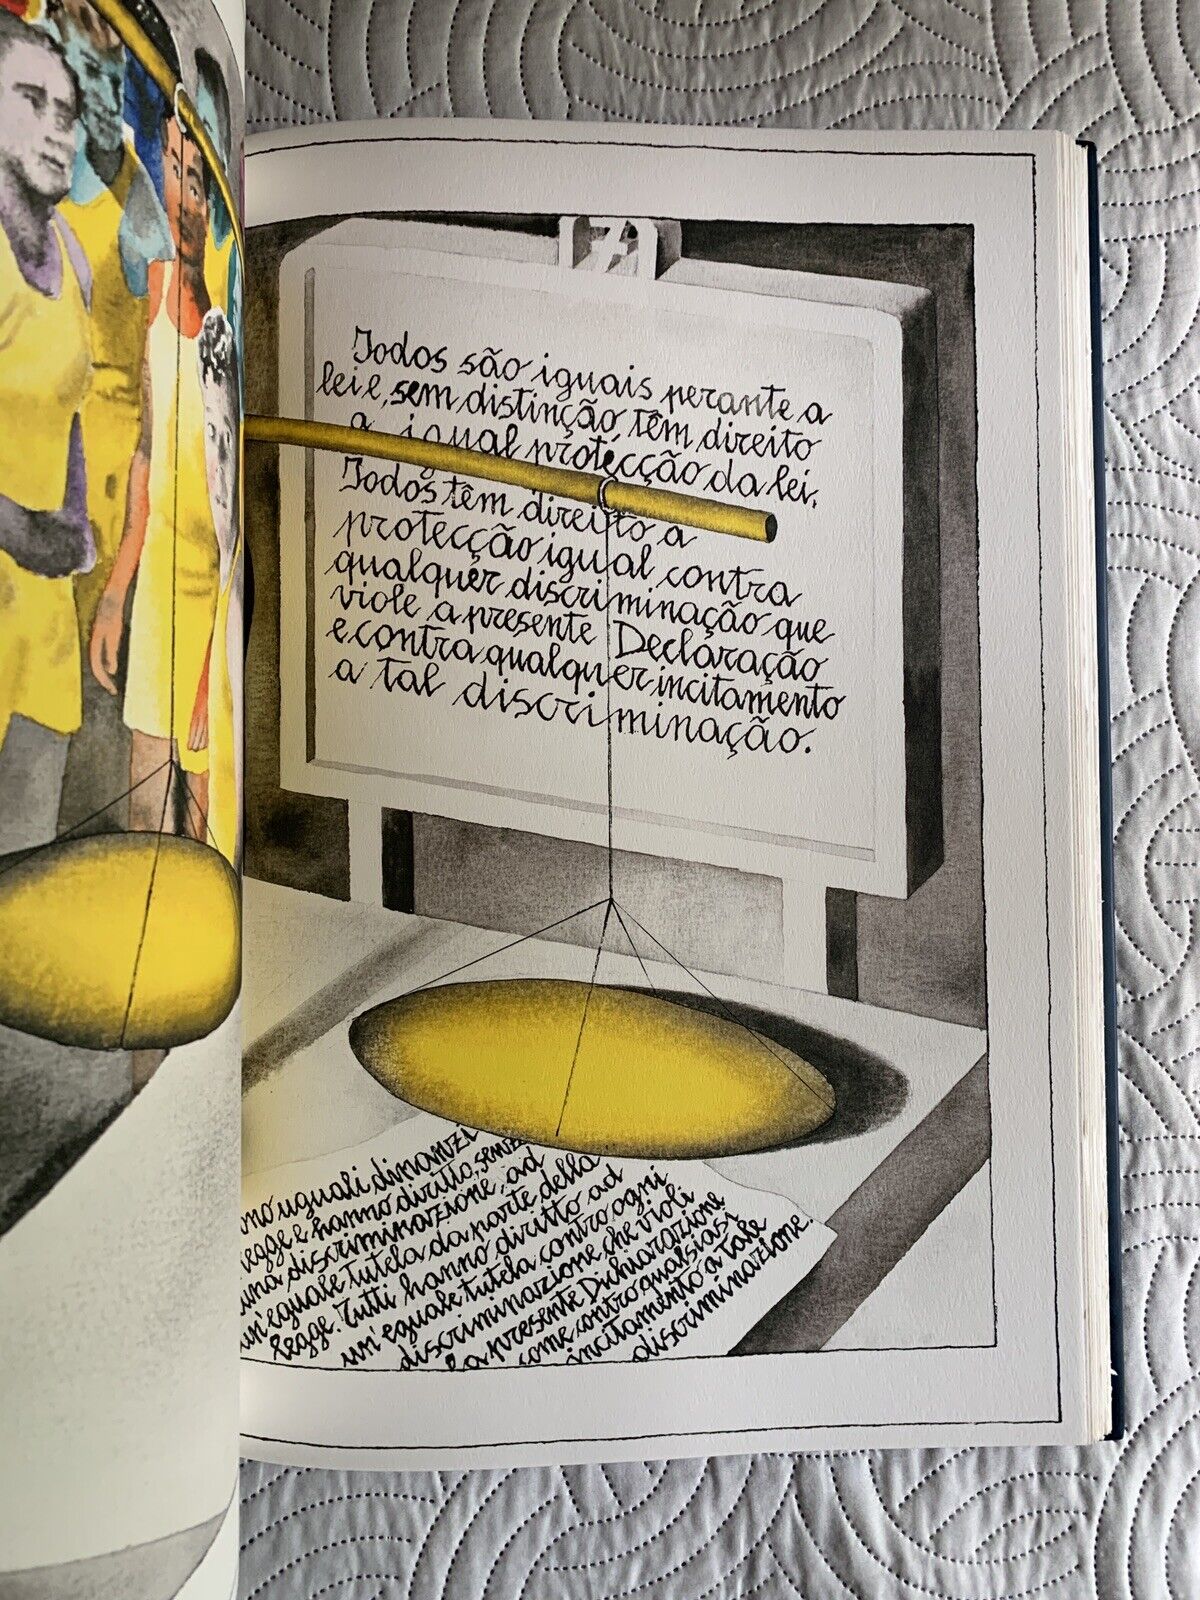 7
Todos são iguais perante a
lei e, sem distinção, têm direito
a igual protecção da lei.
Todos têm direito a
protecção igual contra
qualquer discriminação que
viole a presente Declaração
e contra qualquer incitamento
a tal discriminação.
uguali dinanzi
legge e hanno diritto, senza
una discriminazione, ad
un'eguale tutela da parte della
legge. Tutti hanno diritto ad
un'eguale tutela contro ogni
discriminazione che violi
la presente Dichiarazione
come contro qualsiasi
incitamento a tale
discriminazione.